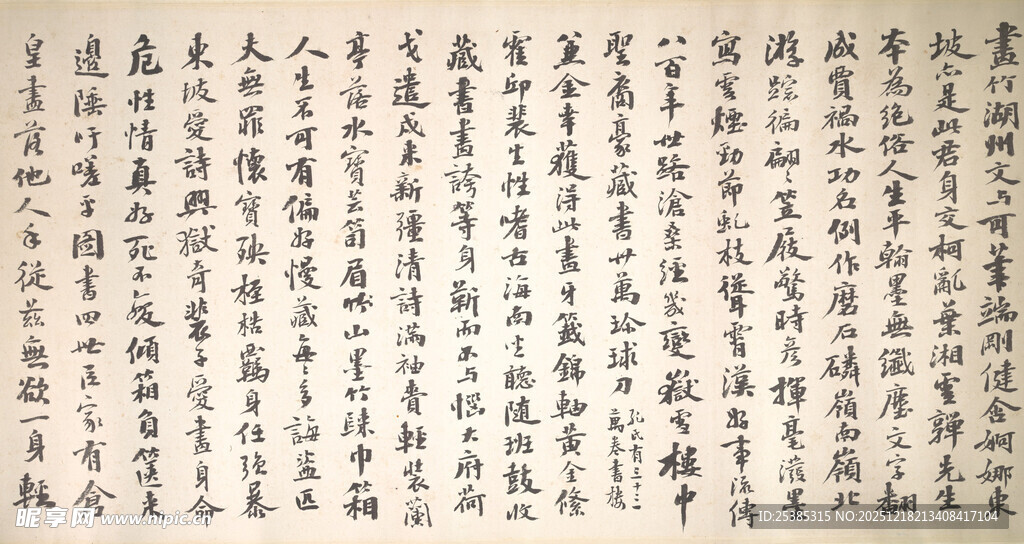 畫竹湖州文与可筆端剛健含婀娜東
坡亦是此君身交柯亂葉湘雲嚲先生
本為絕俗人生平翰墨無纖塵文字翻
成賈禍水功名例作磨石磷嶺南嶺北
游踪徧翩〻笠屐驚時彥揮毫潑墨
寫雲煙勁節虬枝聳霄漢好事流傳
八百年世路滄桑經幾變嶽雪樓中
聖裔豪藏書卅萬玲球刀
孔氏有三十三
萬卷書樓
兼金幸獲得此畫牙籤錦軸黃金絛
霍邱裴生性嗜古海南坐聽随班鼓收
藏書畫誇等身蘄而不与惱大府荷
戈遣戍来新疆清詩滿袖賫輕裝蘭
亭落水寶芸笥眉山墨竹隸巾箱
人生不可有偏好慢藏每〻多誨盜匹
夫無罪懷寶殃桎梏羈身任強暴
東坡愛詩興獄奇裴子愛畫身命
危性情真好死不疲傾箱負篋来
邊陲吁嗟乎圖書四世臣家有倉
皇盡落他人手從茲無欲一身輕
昵享网 www.nipic.cn
ID:25385315 NO:20251218213408417104